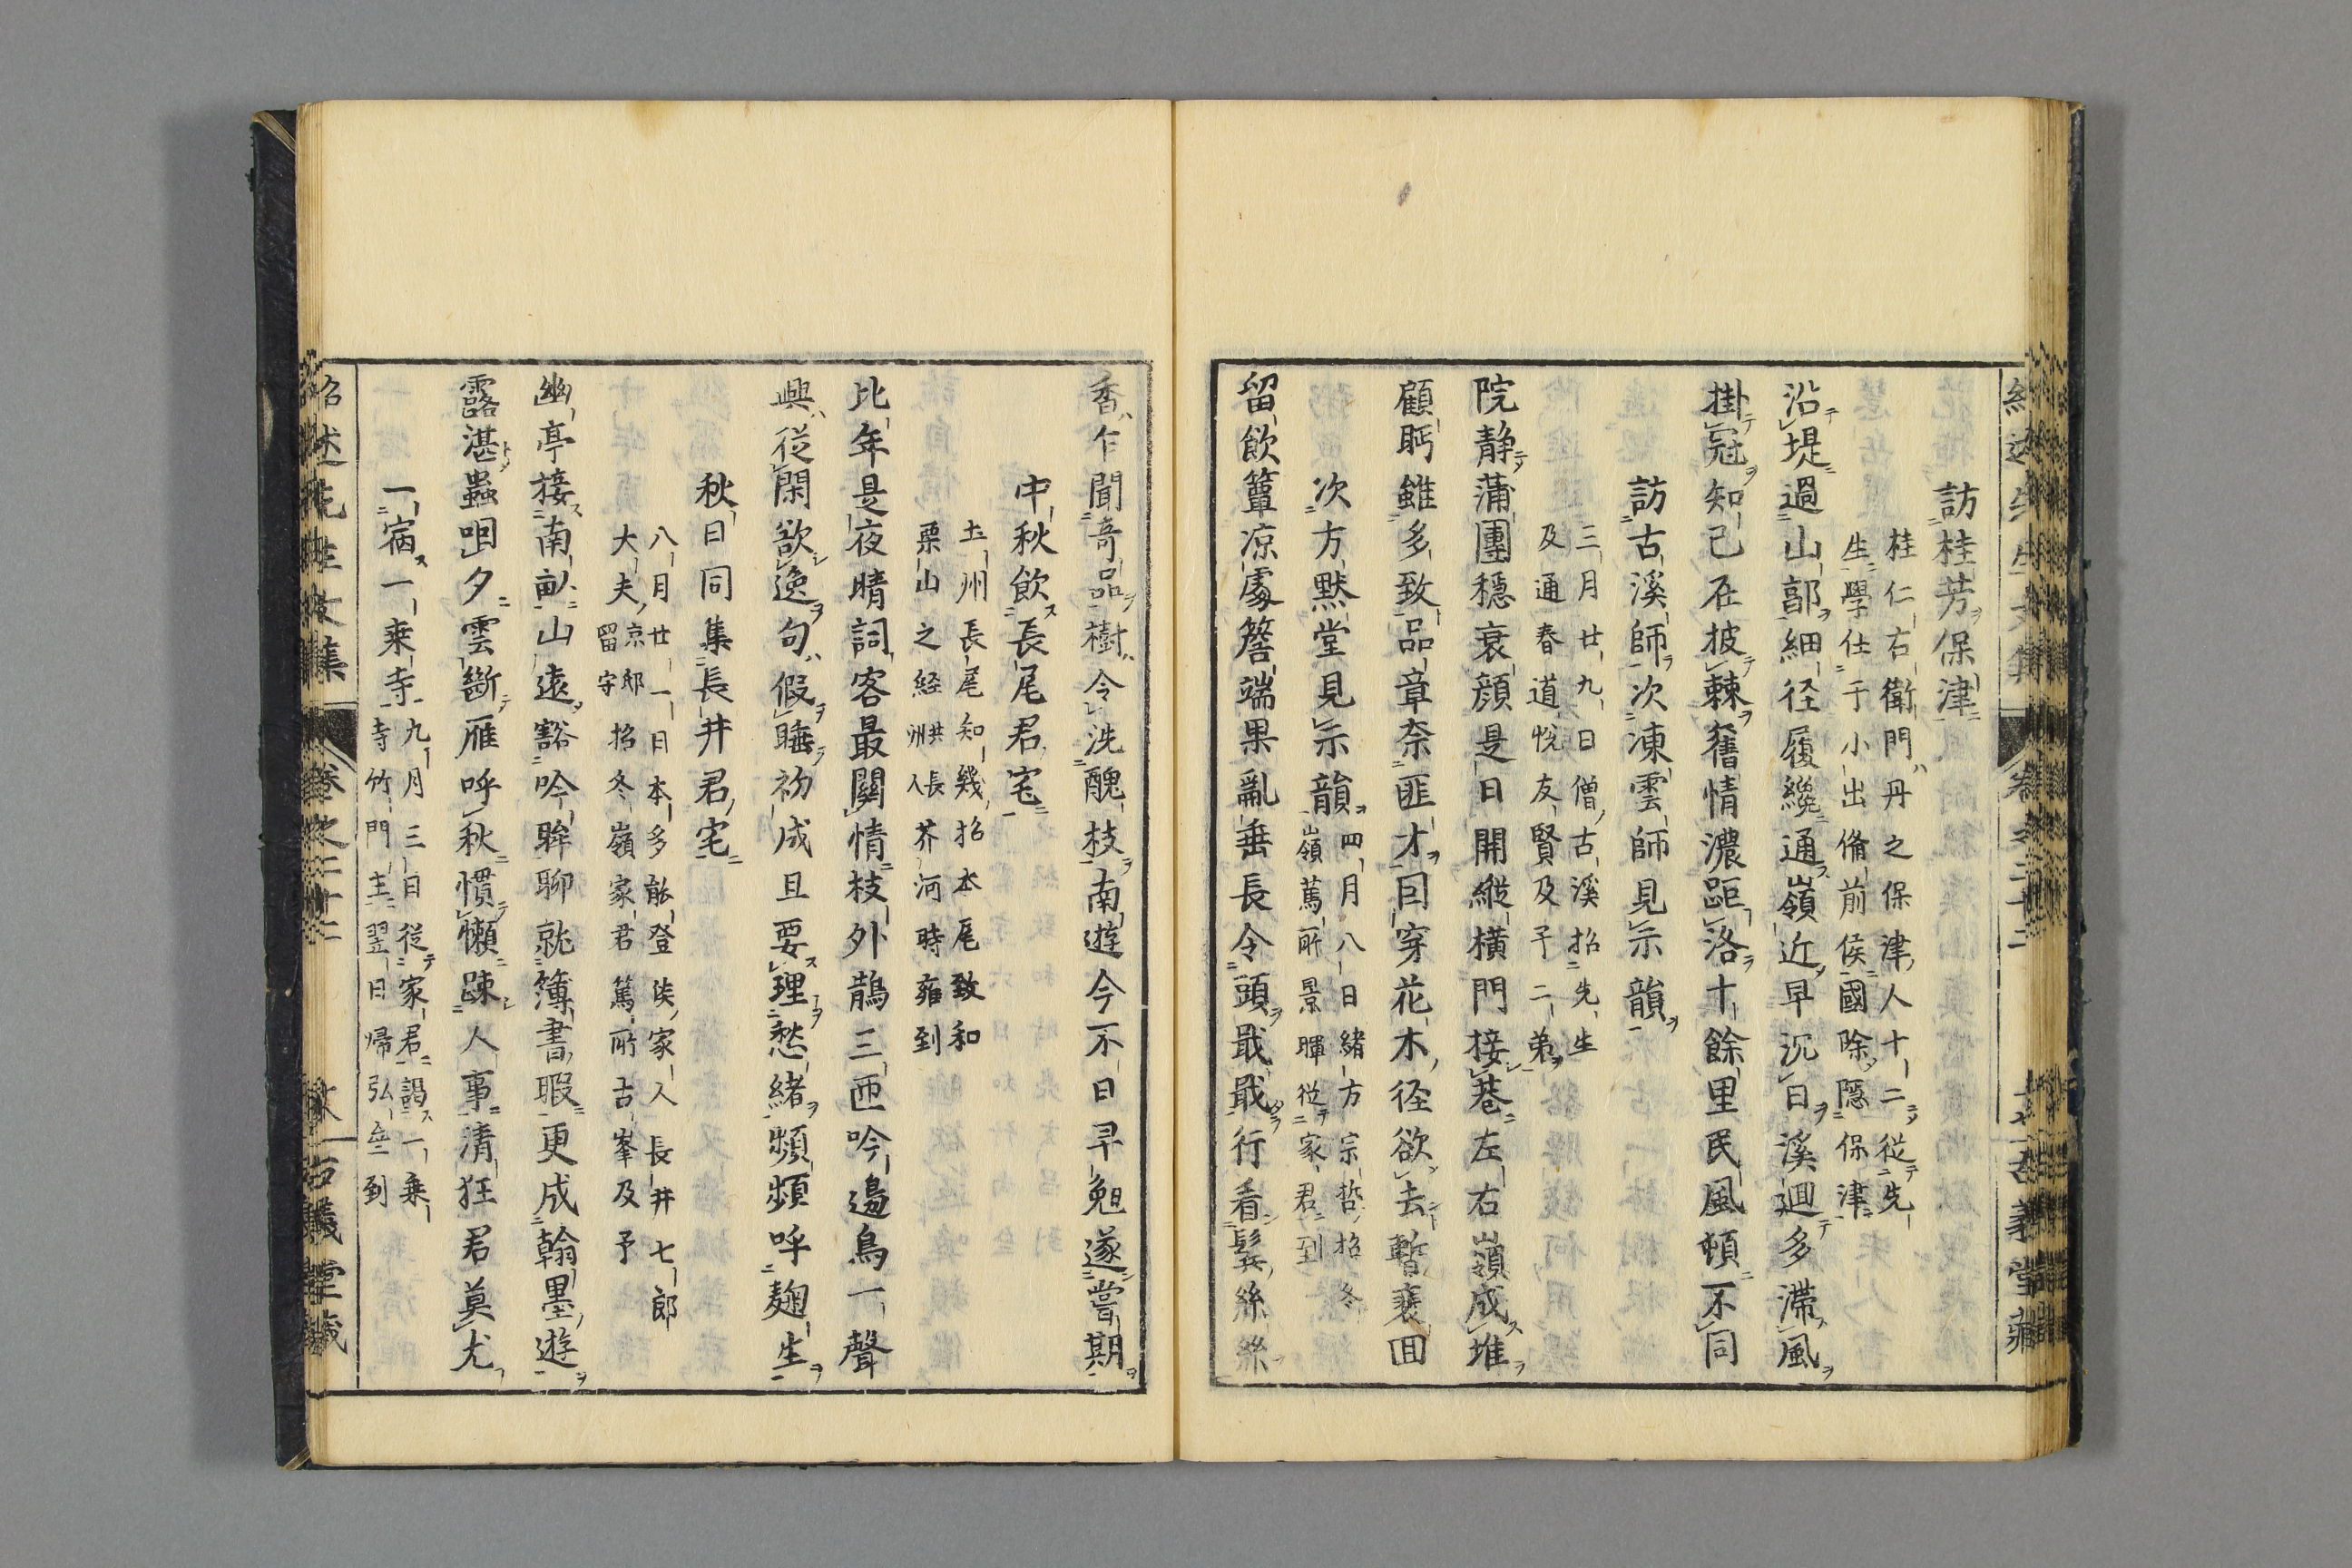 訪桂芳保津
桂仁右衛門丹之保津人十二從先
生學仕于小出脩前侯國除隱保津
沿堤過山部細径履纔通嶺近早沉日溪迴多滯風
掛冠知已在披棘舊情濃距洛十餘里民風頓不同
訪古溪師次凍雲師見示韻
三月廿九日僧古溪招先生
及通春道悦友賢及予二弟
院静蒲團穏衰顔是日開縦横門接巷左右嶺成堆
顧眄雖多致品章奈匪才囙穿花木径欲去暫裵回
次方黙堂見示韻
四月八日緒方宗哲招冬
嶺蔿所景暉從家君到
留飲簟凉處簷端果亂垂長令頭戢戢行看鬓絲絲
香乍聞竒品樹今洗醜枝南遊今不日早勉遂嘗期
中秋飲長尾君宅
土州長尾知幾招水尾致和
栗山之経洪長洲人芥河時雍到
比年是夜晴詞客最關情枝外鵲三匝吟邊鳥一聲
興從閑欲逸句假睡初成且要理愁緒頻頻呼麹生
秋日同集長井君宅
八月廿一日本多能登侯家人長井七郎
大夫京邸留守招冬嶺家君篤所古峯及予
幽亭接南畝山遠豁吟眸聊就簿書暇更成翰墨遊
露湛蟲咀夕雲斷雁呼秋慣懶踈人事清狂君莫尤
一宿一乗寺
九月三日從家君謁一乗
寺竹門主翌日帰弘無到
紹述先生文集
卷之二十二
古義堂藏